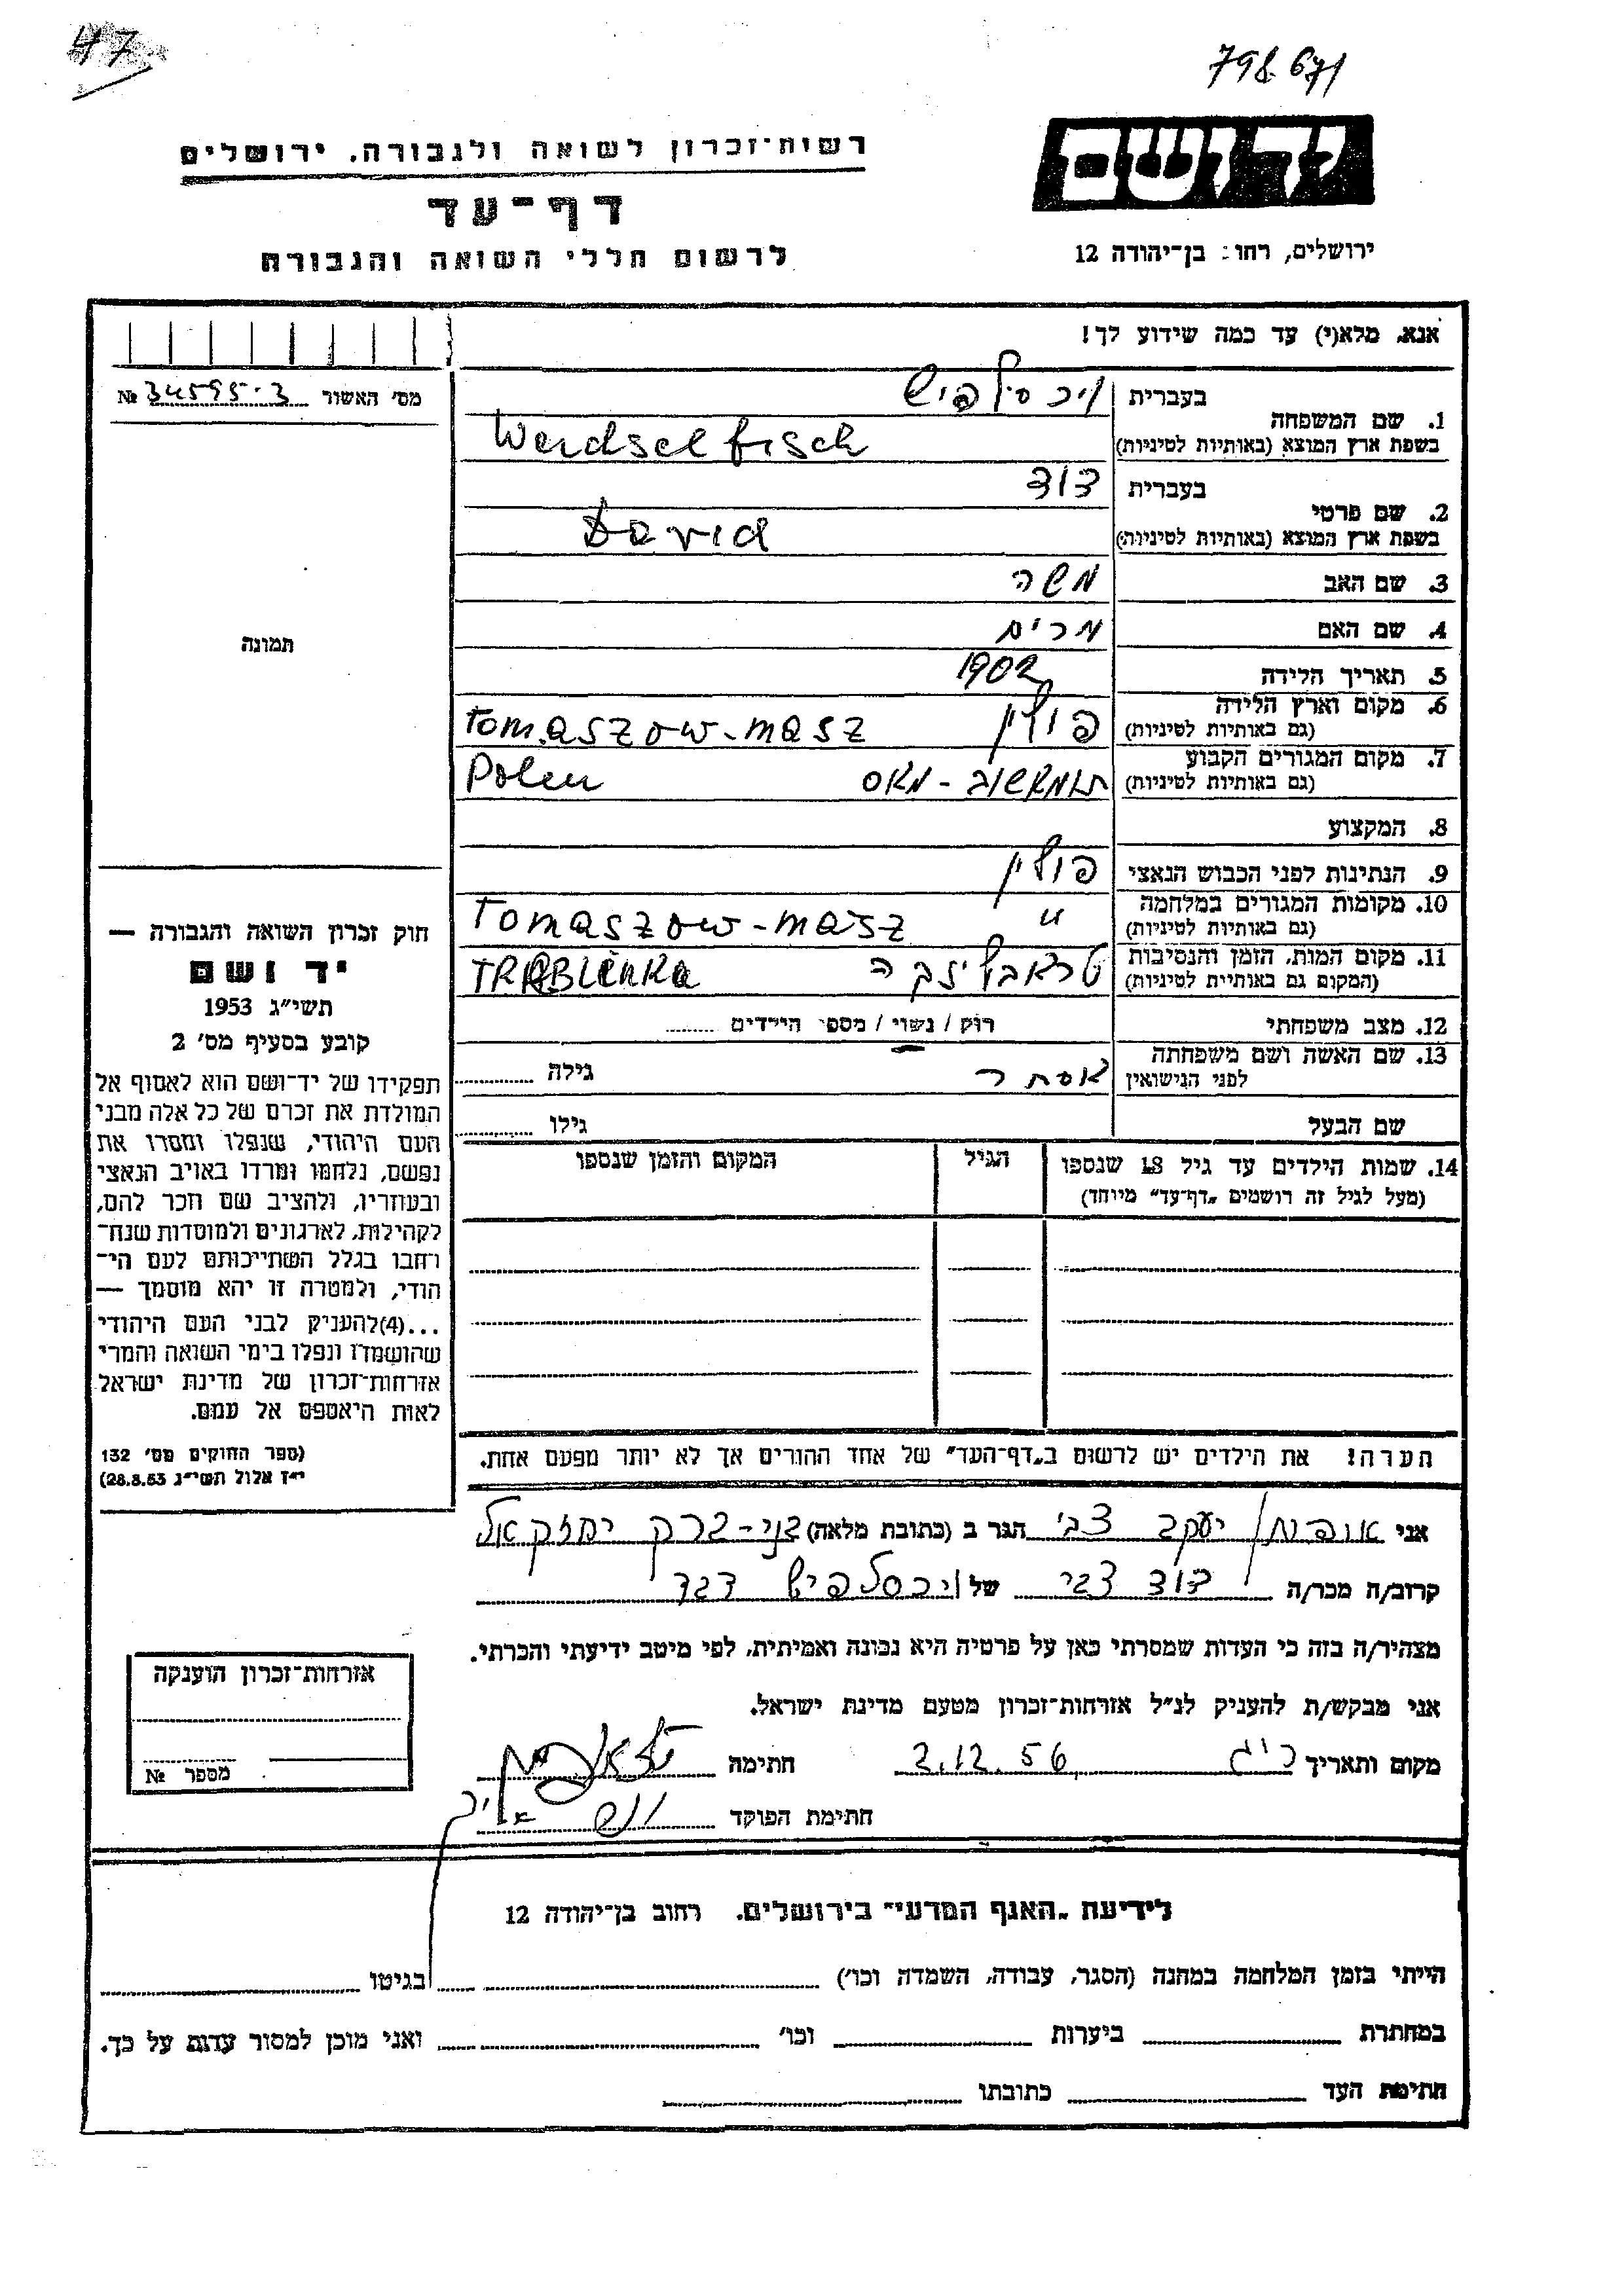 47
798.671
רשות־זכרון לשואה ולגבורה. ירושלים
דף־עד
לרשום חללי השואה והגבורה
יד ושם
ירושלים, רחו: בן־יהודה 12
אנא, מלא(י) עד כמה שידוע לך!
מס׳ האשור 34595.3 №
תמונה
1. שם המשפחה
בעברית ויכסילפיש
בשפת ארץ המוצא (באותיות לטיניות) Wechselfisch
2. שם פרטי
בעברית דוד
בשפת ארץ המוצא (באותיות לטיניות) David
3. שם האב משה
4. שם האם מרים
5. תאריך הלידה 1902
6. מקום וארץ הלידה פולין Tomaszow-masz
(גם באותיות לטיניות)
7. מקום המגורים הקבוע תומאשוב-מאס Polen
(גם באותיות לטיניות)
8. המקצוע
9. הנתינות לפני הכבוש הנאצי פולין
10. מקומות המגורים במלחמה " Tomaszow-masz
(גם באותיות לטיניות)
11. מקום המות, הזמן והנסיבות TRABLENKA
(המקום גם באותיית לטיניות)
12. מצב משפחתי רוק / נשוי / מספר הילדים
13. שם האשה ושם משפחתה אסתר גילה
לפני הנישואין
שם הבעל גילו
14. שמות הילדים עד גיל 18 שנספו הגיל המקום והזמן שנספו
(מעל לגיל זה רושמים „דף־עד״ מיוחד)
הערה! את הילדים יש לרשום ב„דף־העד״ של אחד ההורים אך לא יותר מפעם אחת.
חוק זכרון השואה והגבורה —
יד ושם
תשי״ג 1953
קובע בסעיף מס׳ 2
תפקידו של יד־ושם הוא לאסוף אל
המולדת את זכרם של כל אלה מבני
העם היהודי, שנפלו ומסרו את
נפשם, נלחמו ומרדו באויב הנאצי
ובעוזריו, ולהציב שם וזכר להם,
לקהילות, לארגונים ולמוסדות שנח־
רחבו בגלל השתייכותם לעם הי־
הודי, ולמטרה זו יהא מוסמך —
...(4)להעניק לבני העם היהודי
שהושמדו ונפלו בימי השואה והמרי
אזרחות־זכרון של מדינת ישראל
לאות היאספם אל עמם.
(ספר החוקים מס׳ 132
י״ז אלול תשי״ג 28.8.53)
אני יעקב צבי הגר ב (כתובת מלאה) בני-ברק יחזקאל
קרוב/ה מכר/ה דוד צבי של ויכסלפיש דוד
מצהיר/ה בזה כי העדות שמסרתי כאן על פרטיה היא נכונה ואמיתית, לפי מיטב ידיעתי והכרתי.
אני מבקש/ת להעניק לנ״ל אזרחות־זכרון מטעם מדינת ישראל.
מקום ותאריך 2.12.56 חתימה
חתימת הפוקד
אזרחות־זכרון הוענקה
מספר №
לידיעת „האגף המדעי״ בירושלים. רחוב בן־יהודה 12
הייתי בזמן המלחמה במחנה (הסגר, עבודה, השמדה וכו׳) בגיטו
במחתרת ביערות וכו׳ ואני מוכן למסור עדות על כך.
חתימת העד כתובתו